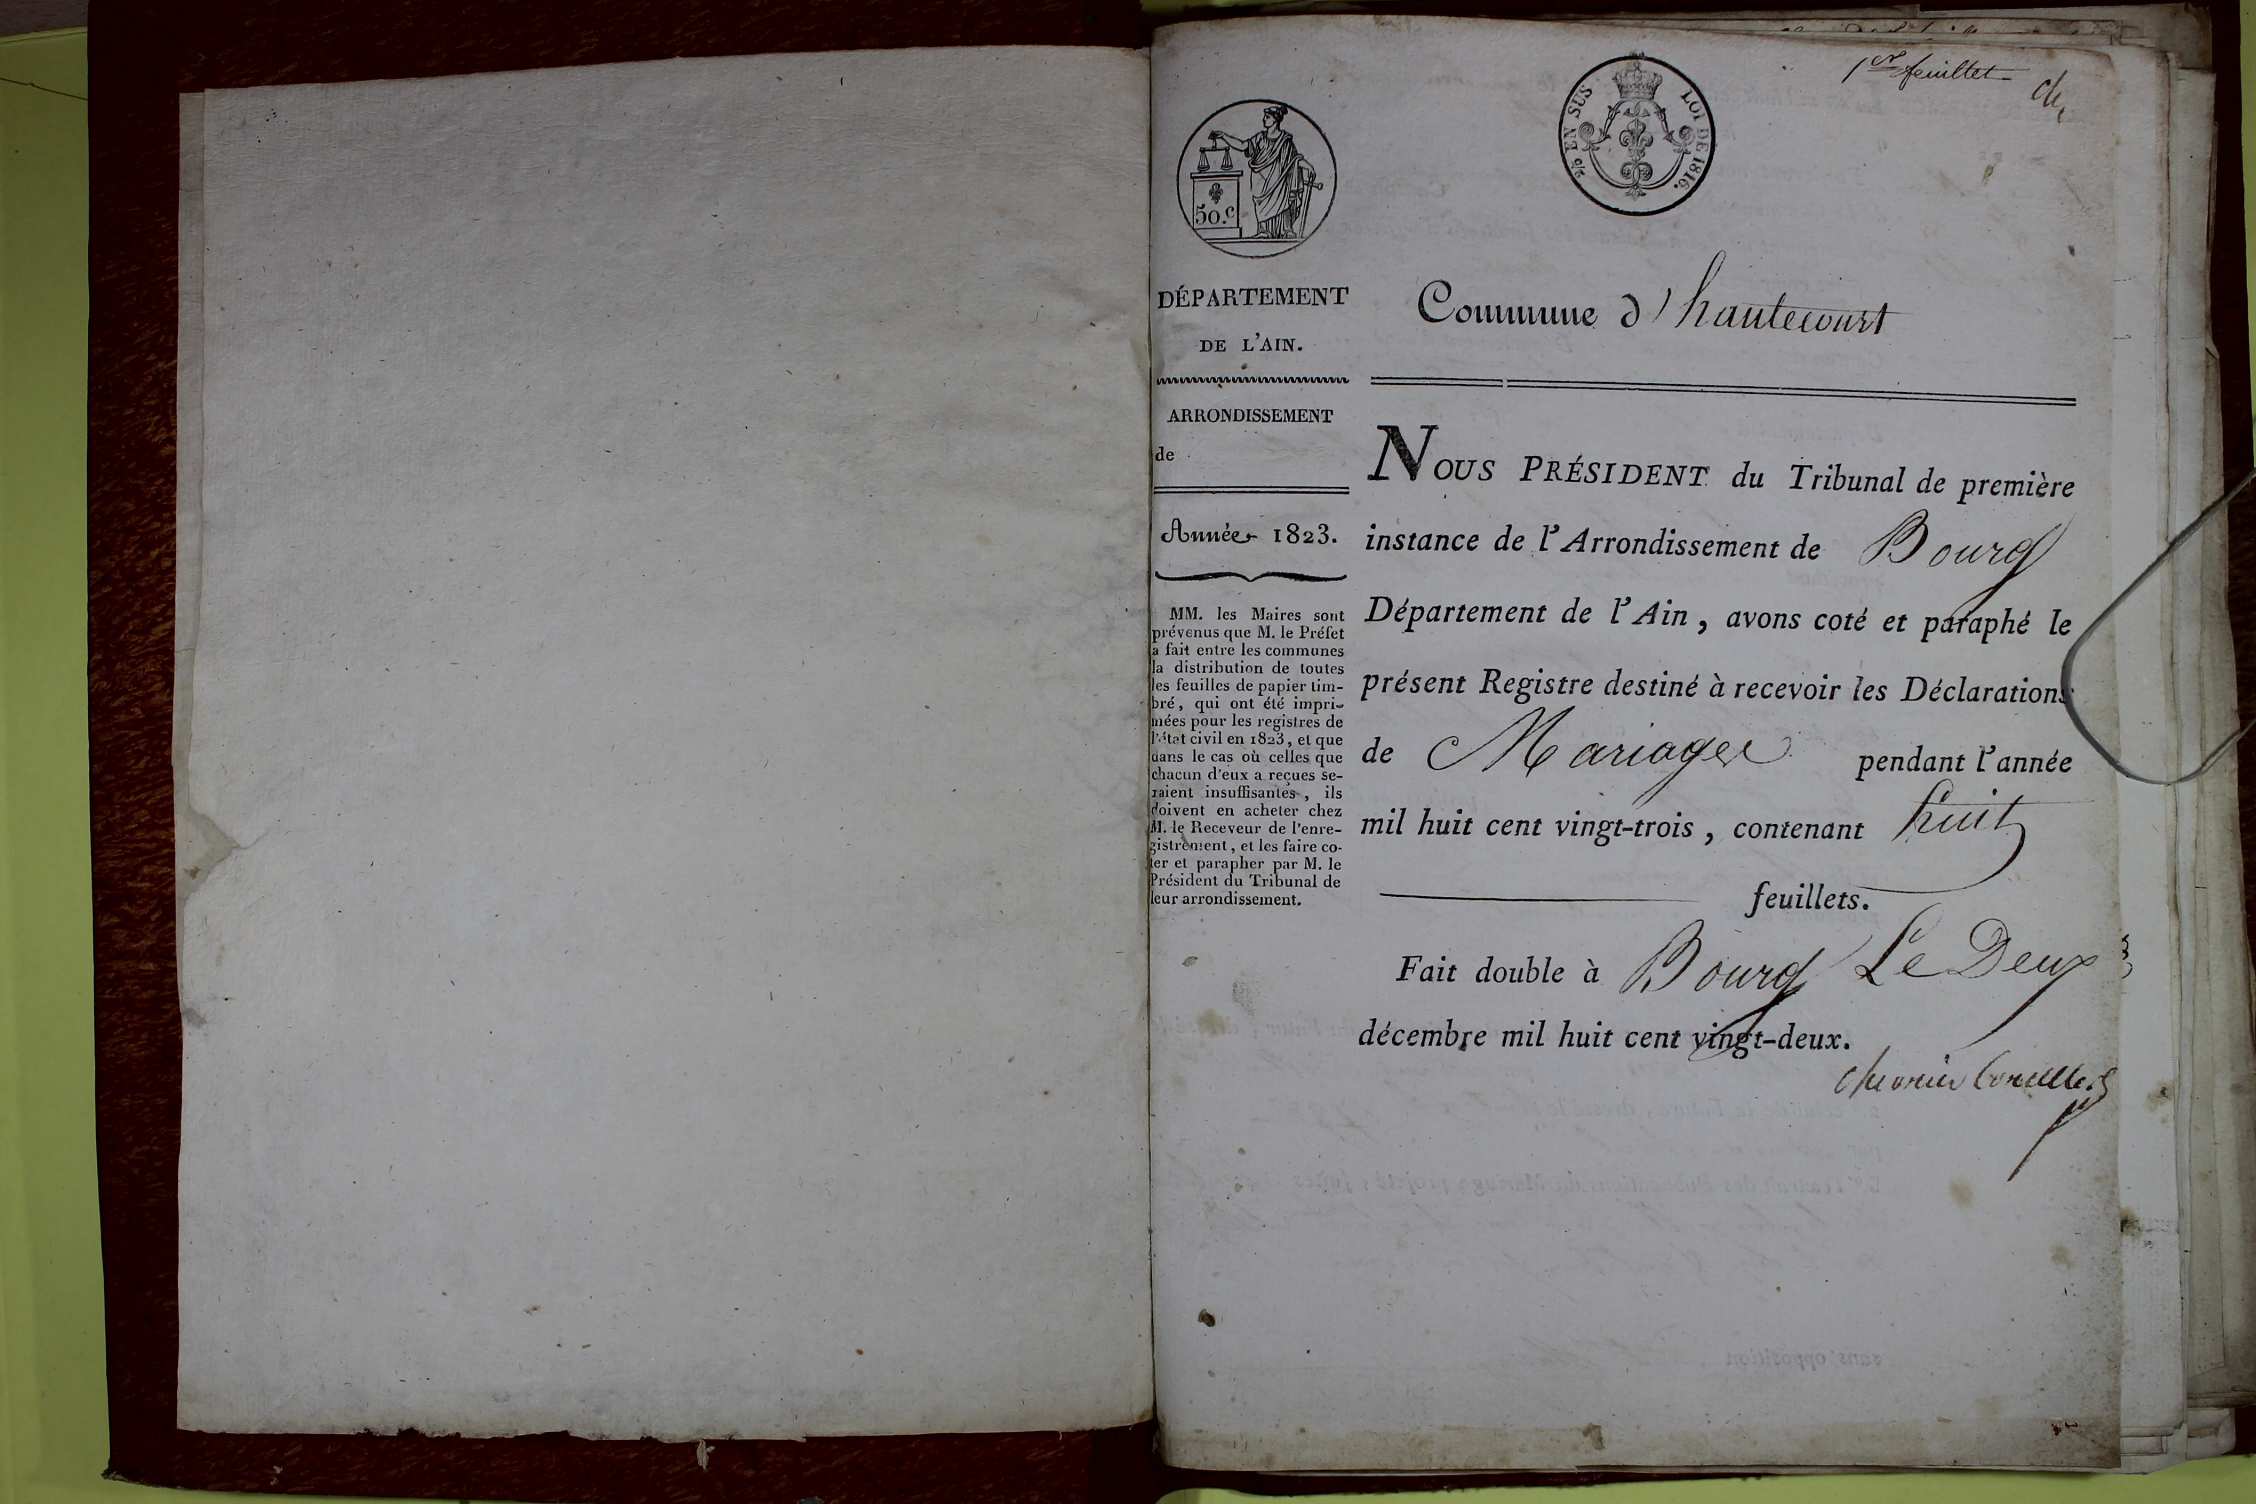 1er feuillet
50.c
EN SUS
LOI DE 1816.
DÉPARTEMENT
DE L'AIN.
ARRONDISSEMENT
de
Année 1823.
MM. les Maires sont
prévenus que M. le Préfet
a fait entre les communes
la distribution de toutes
les feuilles de papier tim-
bré, qui ont été impri-
mées pour les registres de
l'état civil en 1823, et que
dans le cas où celles que
chacun d'eux a reçues se-
raient insuffisantes, ils
doivent en acheter chez
M. le Receveur de l'enre-
gistrement, et les faire co-
ter et parapher par M. le
Président du Tribunal de
leur arrondissement.
Commune d'hautecourt
NOUS PRÉSIDENT du Tribunal de première
instance de l'Arrondissement de Bourg
Département de l'Ain, avons coté et paraphé le
présent Registre destiné à recevoir les Déclarations
de Mariages pendant l'année
mil huit cent vingt-trois, contenant huit
feuillets.
Fait double à Bourg Le Deux
décembre mil huit cent vingt-deux.